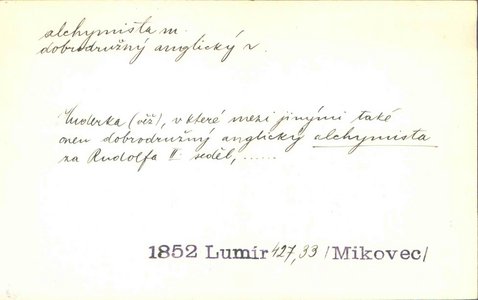 alchymista m.
dobrodružný anglický v.
Huderka (věž), v které mezi jinými také
onen dobrodružný anglický alchymista
za Rudolfa II seděl, ......
1852 Lumír 427,33 /Mikovec/